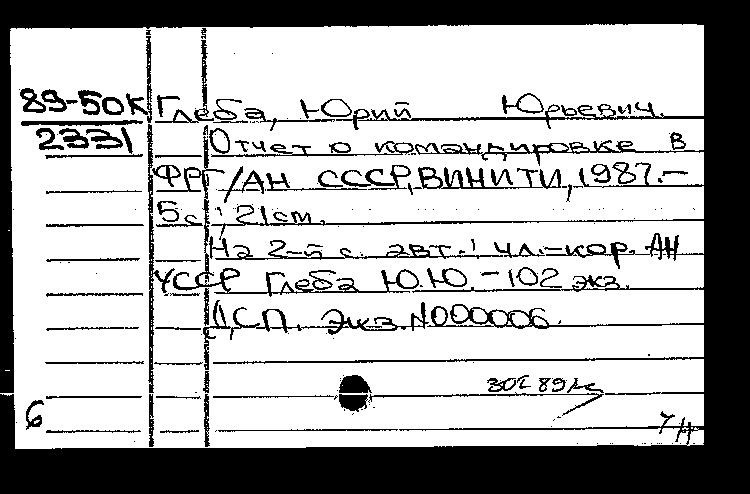 89-50К Глеба, Юрий Юрьевич.
2331 Отчет о командировке в
ФРГ/АН СССР, ВИНИТИ, 1987.-
5с.; 21см.
На 2-й с. авт.: чл.-кор. АН
УССР Глеба Ю.Ю. - 102 экз.
ДСП. Экз. N000006.
6